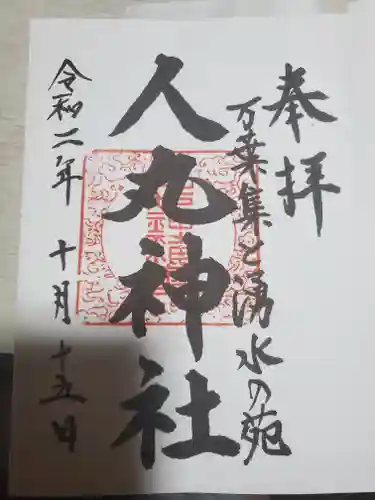 奉拝
万葉集と湧水の苑
人丸神社
令和二年 十月十五日